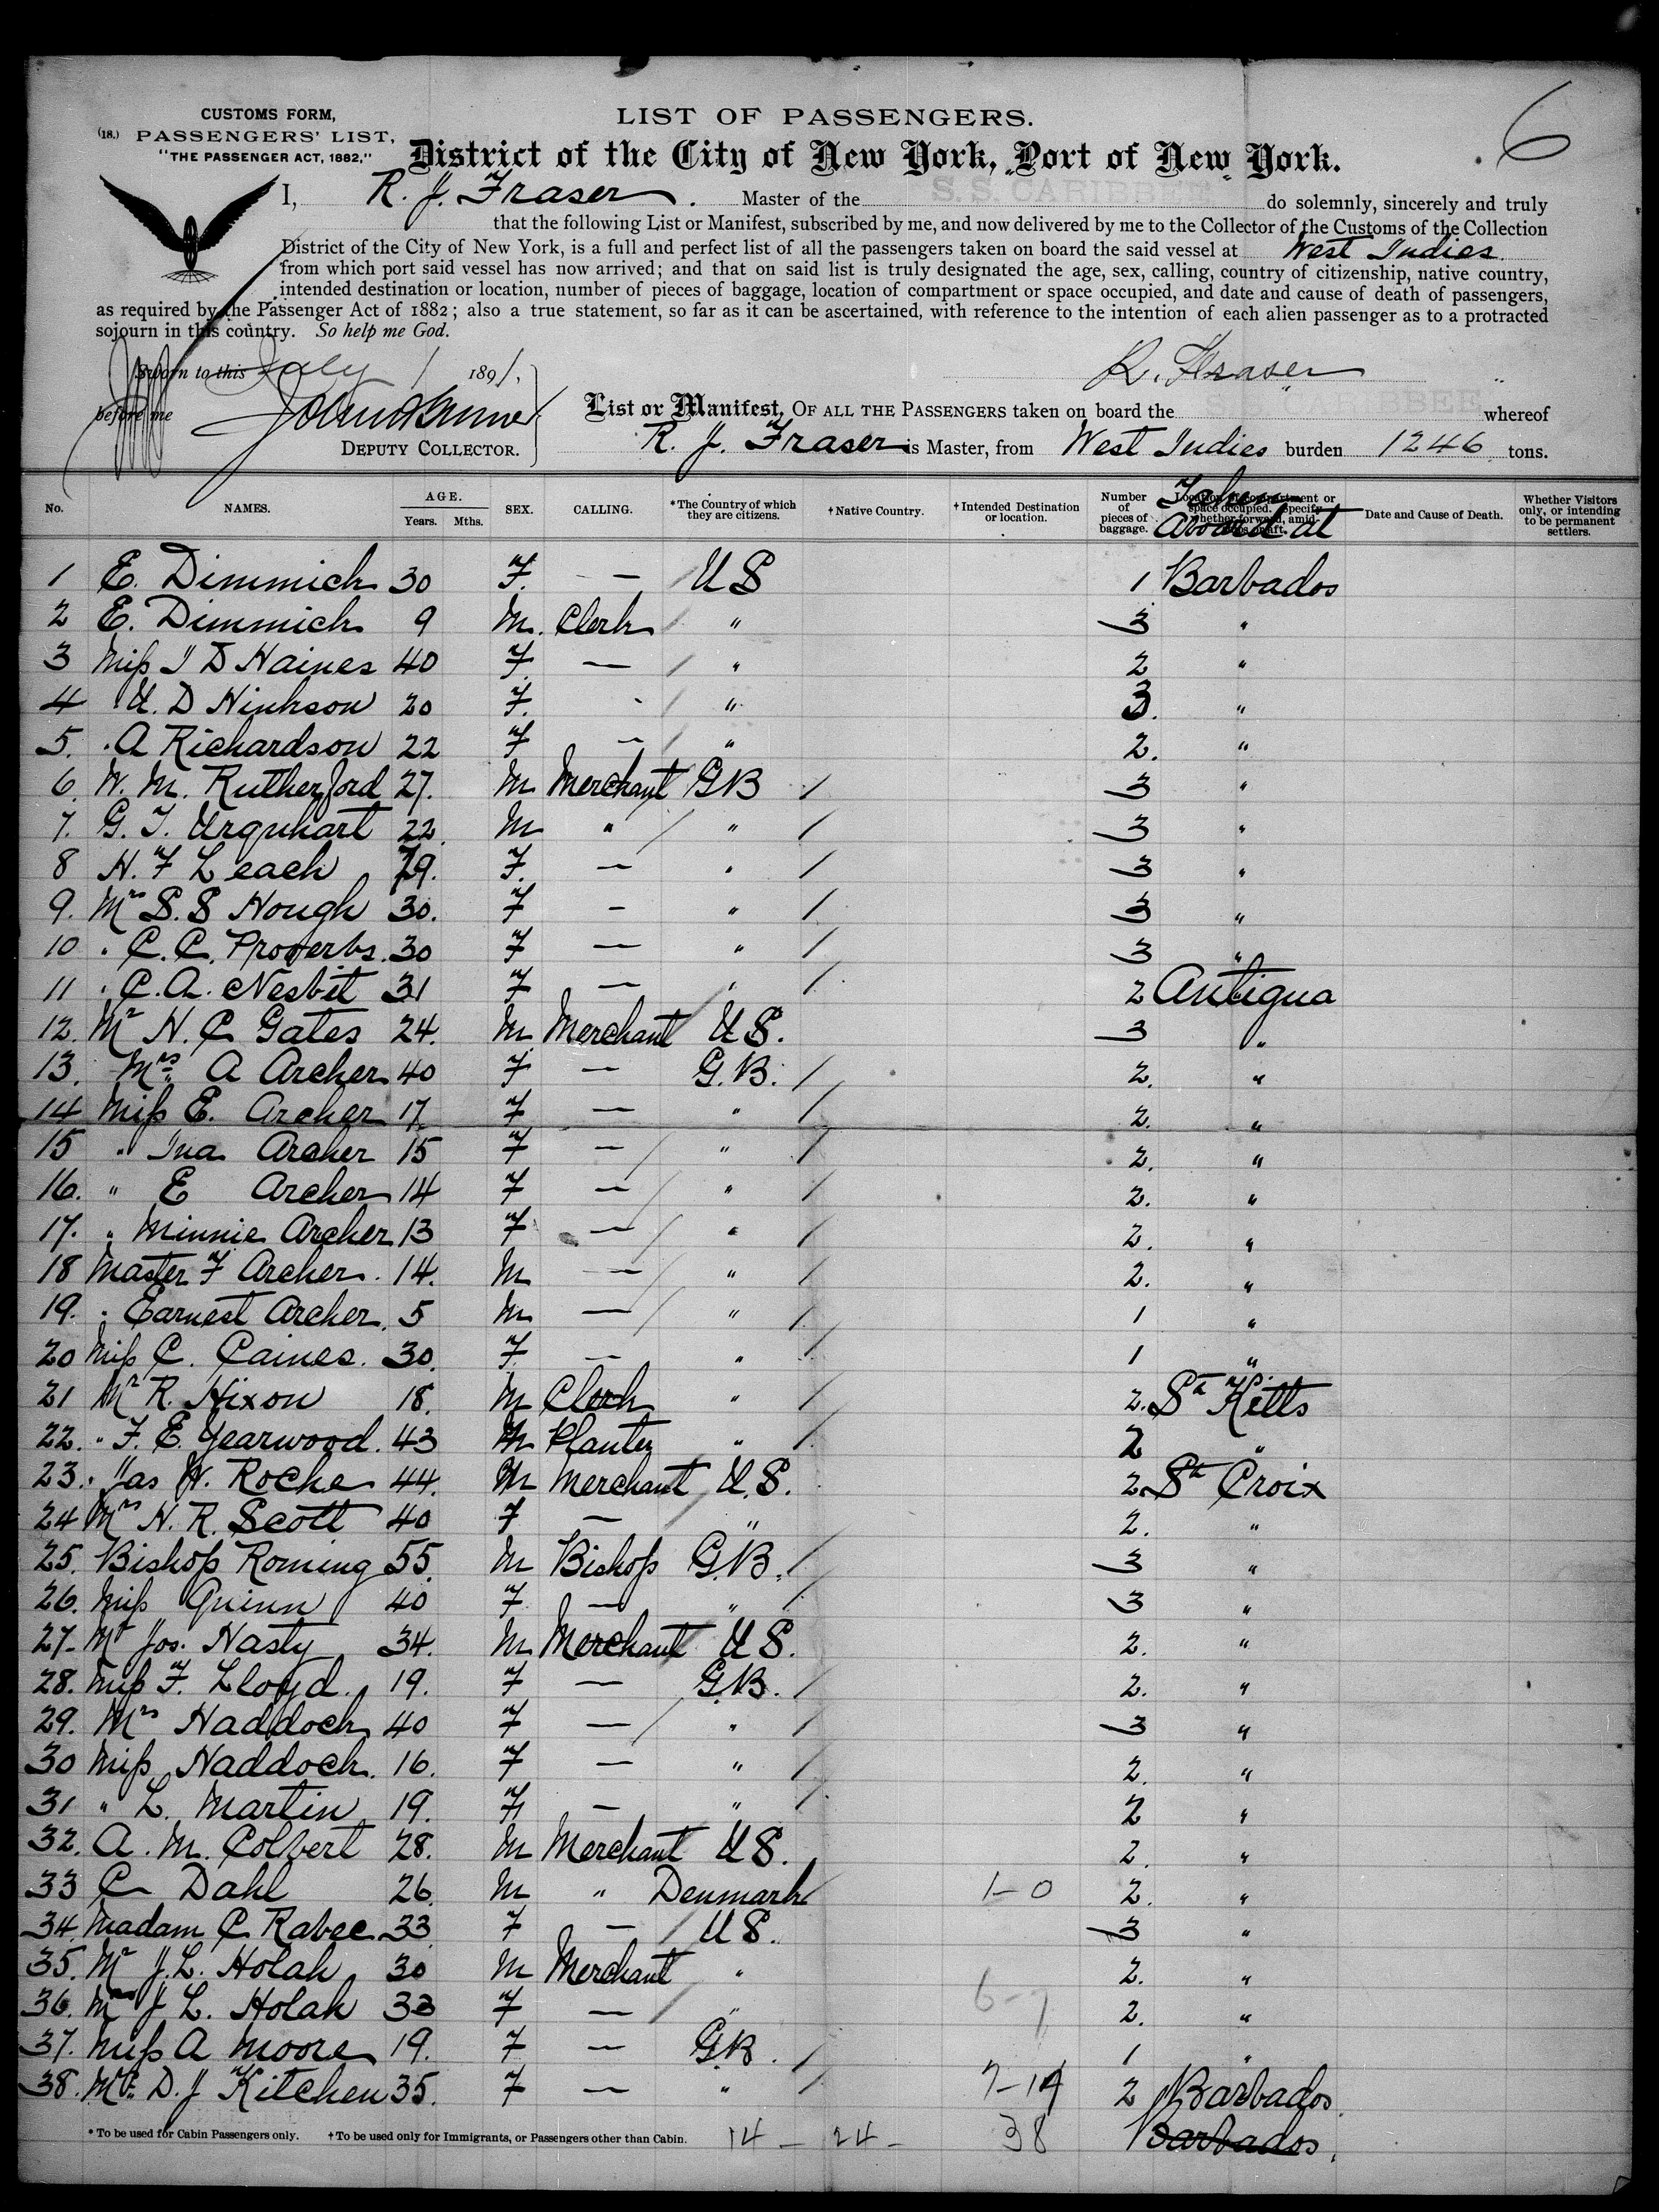 6
CUSTOMS FORM,
(18.) PASSENGERS' LIST,
"THE PASSENGER ACT, 1882,"
LIST OF PASSENGERS.
District of the City of New York, Port of New York.
I, R. J. Fraser. Master of the S.S. CARIBBEE do solemnly, sincerely and truly
that the following List or Manifest, subscribed by me, and now delivered by me to the Collector of the Customs of the Collection
District of the City of New York, is a full and perfect list of all the passengers taken on board the said vessel at West Indies
from which port said vessel has now arrived; and that on said list is truly designated the age, sex, calling, country of citizenship, native country,
intended destination or location, number of pieces of baggage, location of compartment or space occupied, and date and cause of death of passengers,
as required by the Passenger Act of 1882; also a true statement, so far as it can be ascertained, with reference to the intention of each alien passenger as to a protracted
sojourn in this country. So help me God.
Sworn to this July 1 1891,
R. Fraser
before me
DEPUTY COLLECTOR.
List or Manifest, OF ALL THE PASSENGERS taken on board the whereof
R. J. Fraser is Master, from West Indies burden 1246 tons.
No. NAMES. AGE. Years. Mths. SEX. CALLING. *The Country of which they are citizens. †Native Country. †Intended Destination or location. Number of pieces of baggage. Location of compartment or space occupied. Specify whether forward, amidships or aft. Date and Cause of Death. Whether Visitors only, or intending to be permanent settlers.
Taken aboard at
1 E. Dimmich 30 F. — U S 1 Barbados
2 E. Dimmich 9 M. Clerk " 3 "
3 Miss I D Haines 40 F. — " 2 "
4 " U. D Hinkson 20 F. - " 3. "
5. " A Richardson 22 F — " 2. "
6. W. M. Rutherford 27. M Merchant GB 3 "
7. G. T. Urquhart 22. M " " 3 "
8 H. F Leach 29. F. — " 3 "
9. Mrs S. S Hough 30. F — " 3 "
10 " C. C. Proverbs. 30 F — " 3 "
11 " C. A. Nesbit 31 F — " 2 Antigua
12. Mr H. C Gates 24. M Merchant U S. 3 "
13. Mrs. A Archer 40 F — G.B. 2. "
14 Miss E. Archer 17 F — " 2. "
15 " Ina Archer 15 F — " 2. "
16. " E Archer 14 F — " 2. "
17. " Minnie Archer 13 F — " 2. "
18 Master F Archer. 14. M — " 2. "
19. " Earnest Archer. 5 M — " 1 "
20 Miss C. Caines. 30. F. — " 1 "
21 Mr R. Hixon 18. M Clerk " 2. St. Kitts
22. " F. E. Yearwood. 43 M Planter " 2 "
23. " Jas W. Roche 44. M Merchant U.S. 2 St Croix
24 Mrs H. R. Scott 40 F — " 2. "
25. Bishop Roming 55. M Bishop G.B. 3 "
26. Miss Quinn 40 F — " 3 "
27. Mr Jos. Hasty 34. M Merchant U S. 2. "
28. Miss F. Lloyd. 19. F — G.B. 2. "
29. Mrs Haddock 40 F — " 3 "
30 Miss Haddock. 16. F — " 2. "
31 " L. Martin 19. F — " 2 "
32. A. M. Colbert 28. M Merchant U S. 2. "
33 C Dahl 26 M " Denmark 1-0 2. "
34. Madam C Rabee 33 F — U S. 3 "
35. Mr J. L. Holah 30 M Merchant " 2. "
36. Mrs J L. Holah 33 F — " 6-7 2. "
37. Miss A Moore 19. F — G.B. 1 "
38. Mrs. D. J Kitchen 35. F — " 7-14 2 Barbados
* To be used for Cabin Passengers only. † To be used only for Immigrants, or Passengers other than Cabin. 14 - 24 - 38 Barbados.